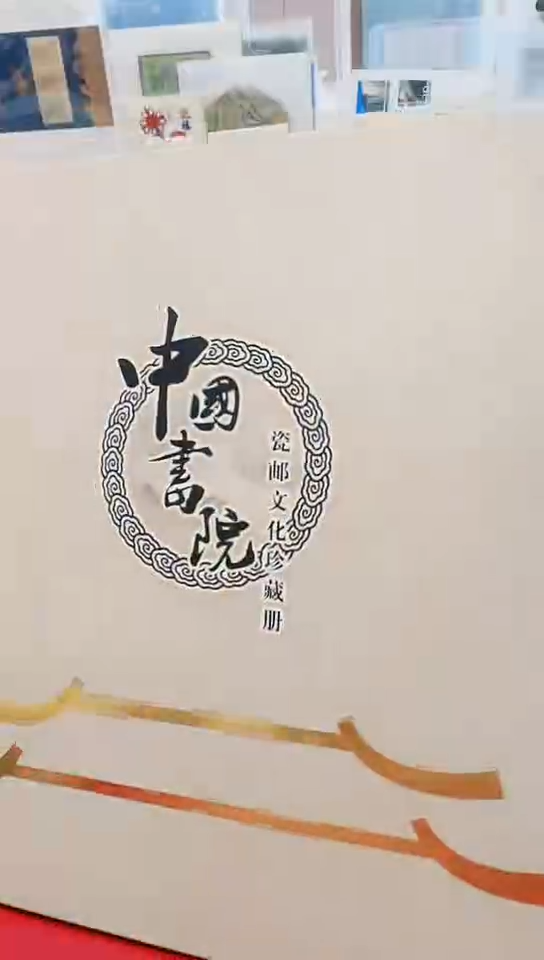 中國書院
瓷邮文化珍藏册